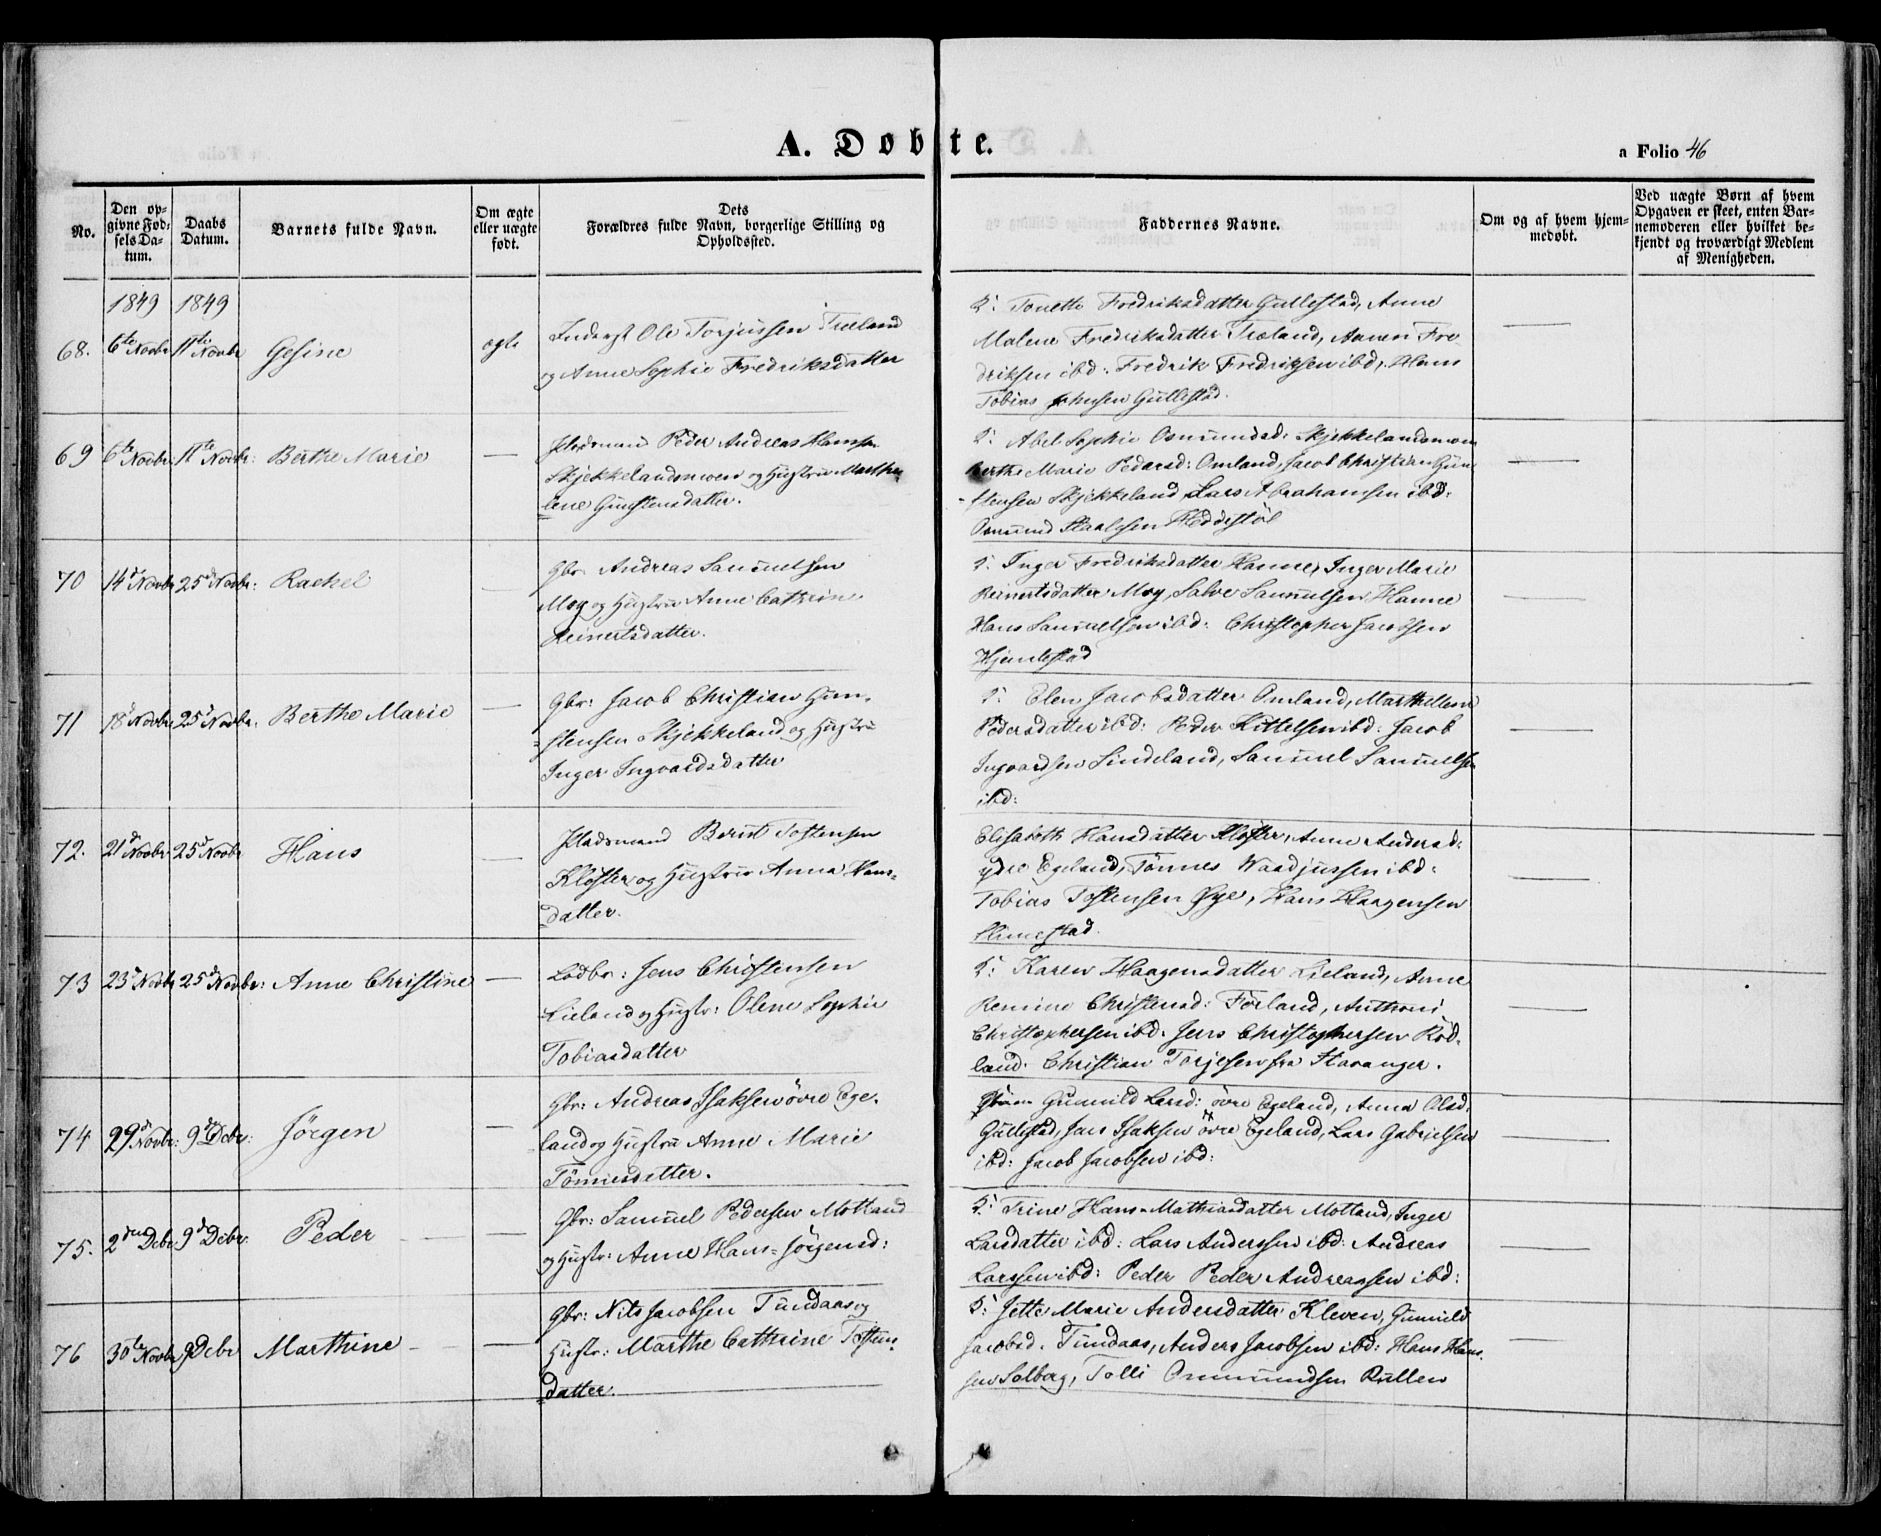 A. Døbte.
a Folio 46
No.
Den op-
givne Fød-
sels Da-
tum.
Daabs
Datum.
Barnets fulde Navn.
Om ægte
eller uægte
født.
Dets
Forældres fulde Navn, borgerlige Stilling og
Opholdssted.
Faddernes Navne.
Om og af hvem hjem-
medøbt.
Ved uægte Børn af hvem
Opgaven er skeet, enten Bar-
nemoderen eller hvilket be-
kjendt og troværdigt Medlem
af Menigheden.
1849 1849
68. 6te Novbr 11te Novbr Gesine ægte
Inderst Ole Torjussen Træland
og Anne Sophie Fredriksdatter
Tonette Fredriksdatter Gullestad, Anne
Malene Fredriksdatter Træland, Aanen Fre
driksen ibd: Fredrik Fredriksen ibd, Hans
Tobias Johnsen Gullestad.
69 6te Novbr 11te Novbr: Berthe Marie —
Pladsmand Peder Andreas Hansen
Skjekkelandsmoen og Hustru Marthe
lene Gunstensdatter.
Abel Sophie Osmundsd: Skjekkelandsmoen
Berthe Marie Pedersd: Omland, Jacob Christian Gun
stensen Skjekkeland, Lars Abrahamsen ibd:
Osmund Staalesen Heddestöl
70 14d Novbr 25d Novbr: Rachel —
Gbr: Andreas Samuelsen
Moy og Hustru Anne Cathrine
Reinertsdatter.
Inger Fredriksdatter Hanne, Inger Marie
Reinertsdatter Moy, Salve Samuelsen Hanne
Hans Samuelsen ibd: Christopher Jacobsen
Hjemlestad
71 18d Novbr 25d Novbr: Berthe Marie —
Gbr: Jacob Christian Gun-
stensen Skjekkeland og Hustru
Inger Ingvardsdatter
Elen Jacobsdatter Omland, Marthelene
Pedersdatter ibd: Peder Kittelsen ibd: Jacob
Ingvardsen Sindeland, Samuel Samuelsen
ibd:
72. 21d Novbr 25d Novbr Hans —
Pladsmand Bernt Tostensen
Kloster og Hustru Anna Hans-
datter.
Elisabeth Hansdatter Kloster, Anne Andersd:
ydre Egeland, Tönnes Waadjussen ibd:
Tobias Tostensen Øye, Hans Haagensen
Slimestad.
73 23d Novbr 25d Novbr: Anne Christine —
Lødbr: Jens Christensen
Lieland og Hustr: Olene Sophie
Tobiasdatter
Karen Haagensdatter Lieland, Anne
Remine Christensd: Forland, Anthoni
Christophersen ibd. Jens Christophersen Rød-
land. Christian Torjesen fra Stavanger.
74 29d Novbr: 9d Debr: Jörgen —
Gbr: Andreas Isaksen övre Ege-
land og Hustru Anne Marie
Tönnesdatter.
Gunnild Larsd: övre Egeland, Anna Olsd.
Gullestad, Jens Isaksen övre Egeland, Lars Gabrielsen
ibd: Jacob Jacobsen ibd:
75. 2den Debr: 9d Debr: Peder —
Gbr: Samuel Pedersen Motland
og Hustr: Anne Hans-Jörgensd:
Trine Hans-Mathiasdatter Motland, Inger
Larsdatter ibd: Lars Anderssen ibd: Andreas
Larssen ibd: Peder Peder Andreassen ibd:
76 30te Novbr 9d Debr Marthine —
Gbr: Nils Jacobsen Tundaas og
Hustr: Marthe Cathrine Tosten-
datter.
Jette Marie Andersdatter Kleven, Gunnild
Jacobsd. Tundaas, Anders Jacobsen ibd: Hans Han-
sen Solberg, Tolli Ommundsen Rullen